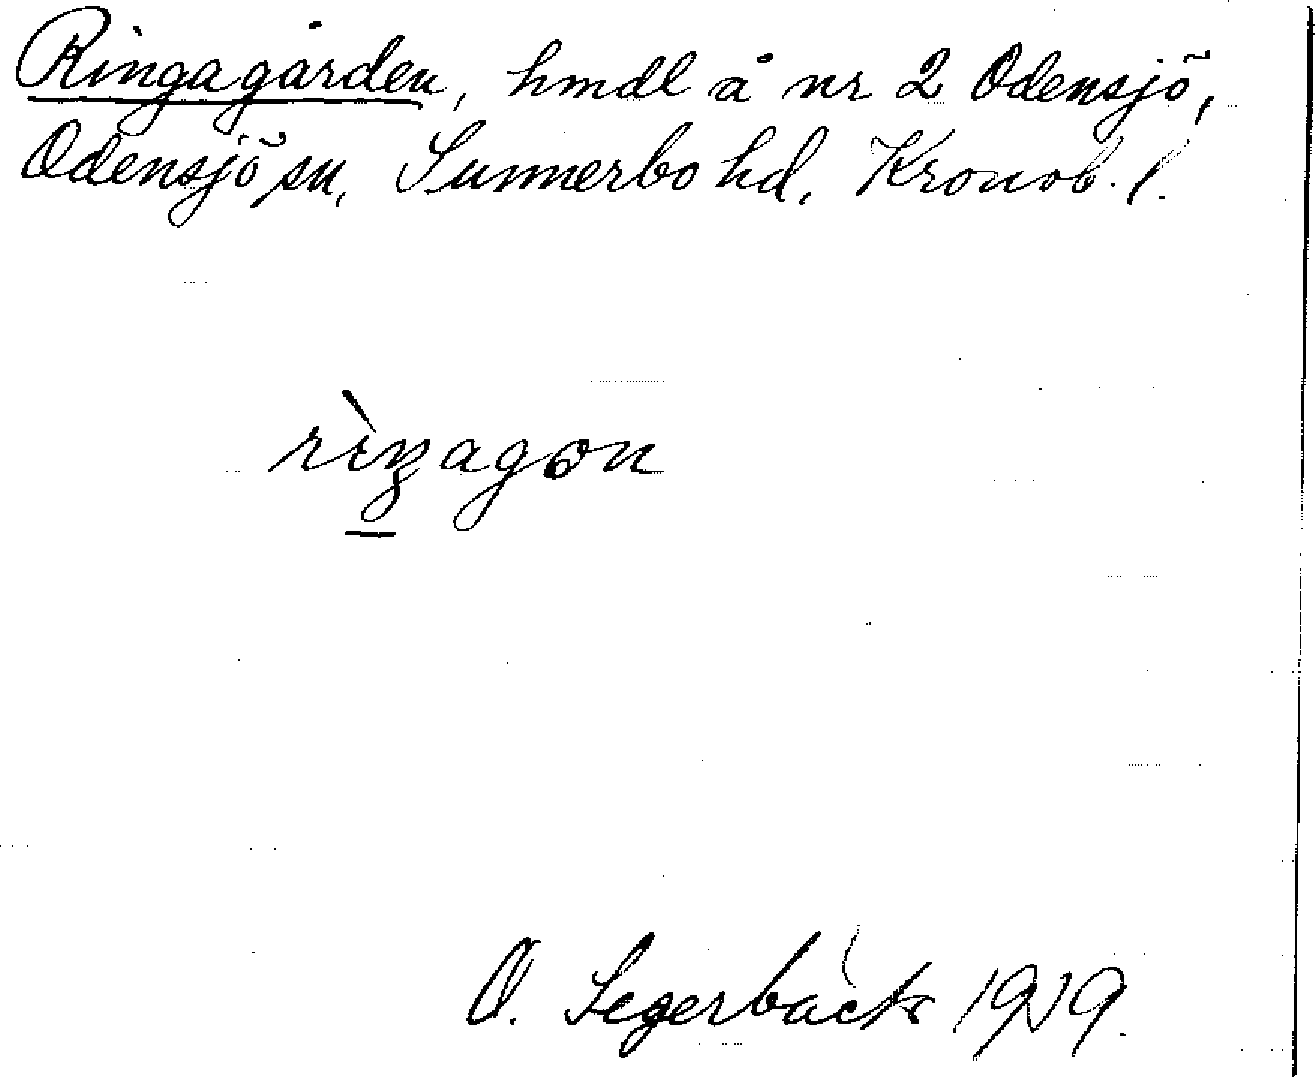 Ringagården, hmdl å nr 2 Odensjö,
Odensjö sn, Sunnerbo hd, Kronob. l.
rìŋagɷn
O. Segerbäck 1919.